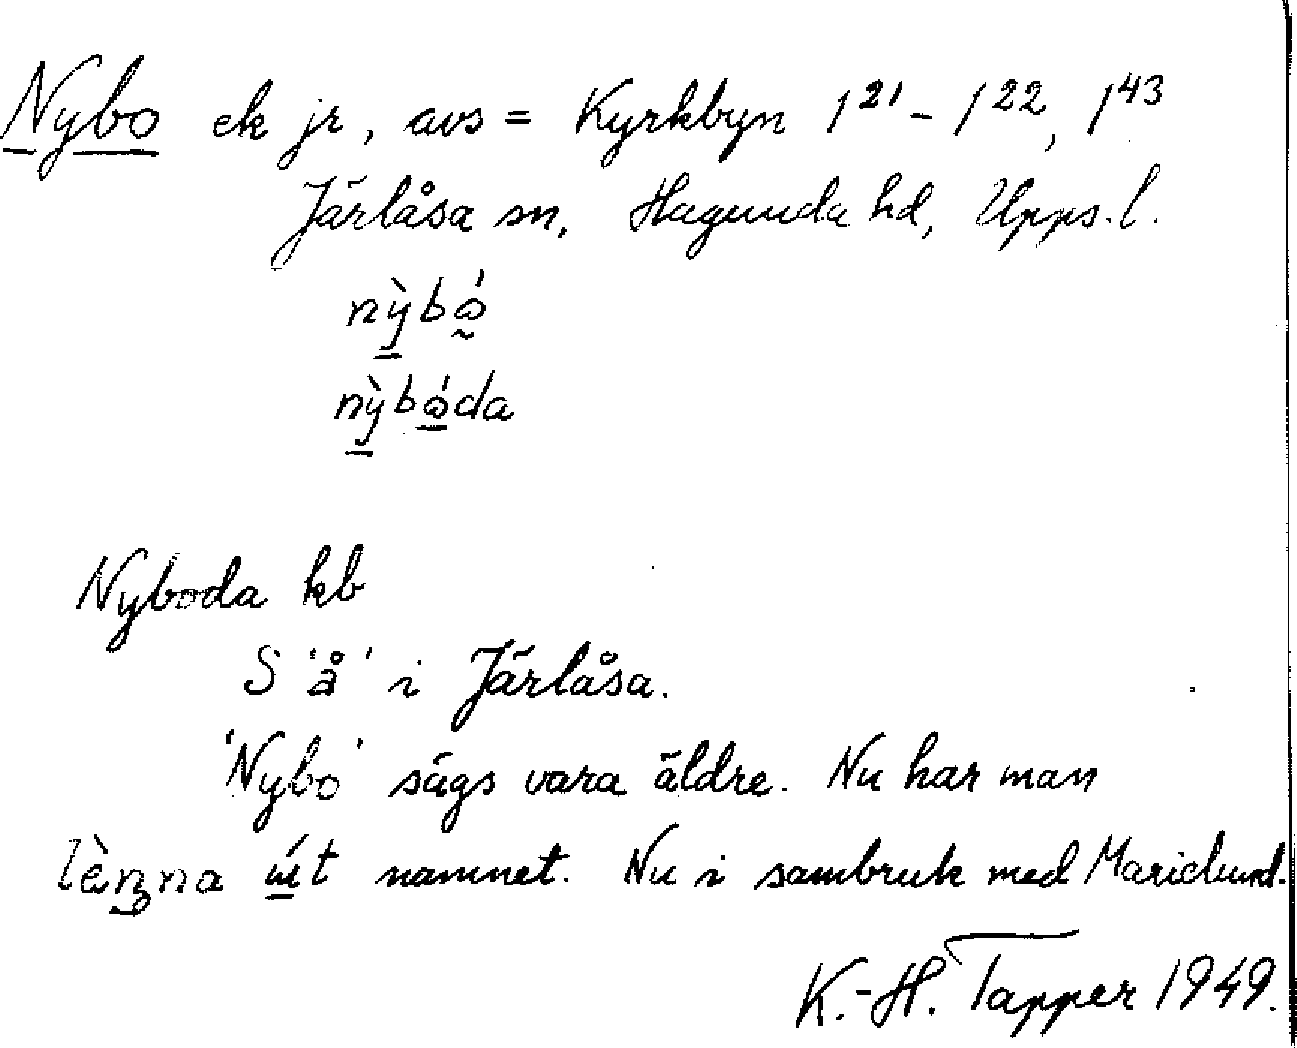 Nybo ek jr, avs = Kyrkbyn 1²¹ - 1²², 1⁴³
Järlåsa sn, Hagunda hd, Upps. l.
nỳbό
nỳbόda
Nyboda kb
S 'å' i Järlåsa.
'Nybo' sägs vara äldre. Nu har man
lènna út namnet. Nu i sambruk med Marielund.
K.-H. Tapper 1949.